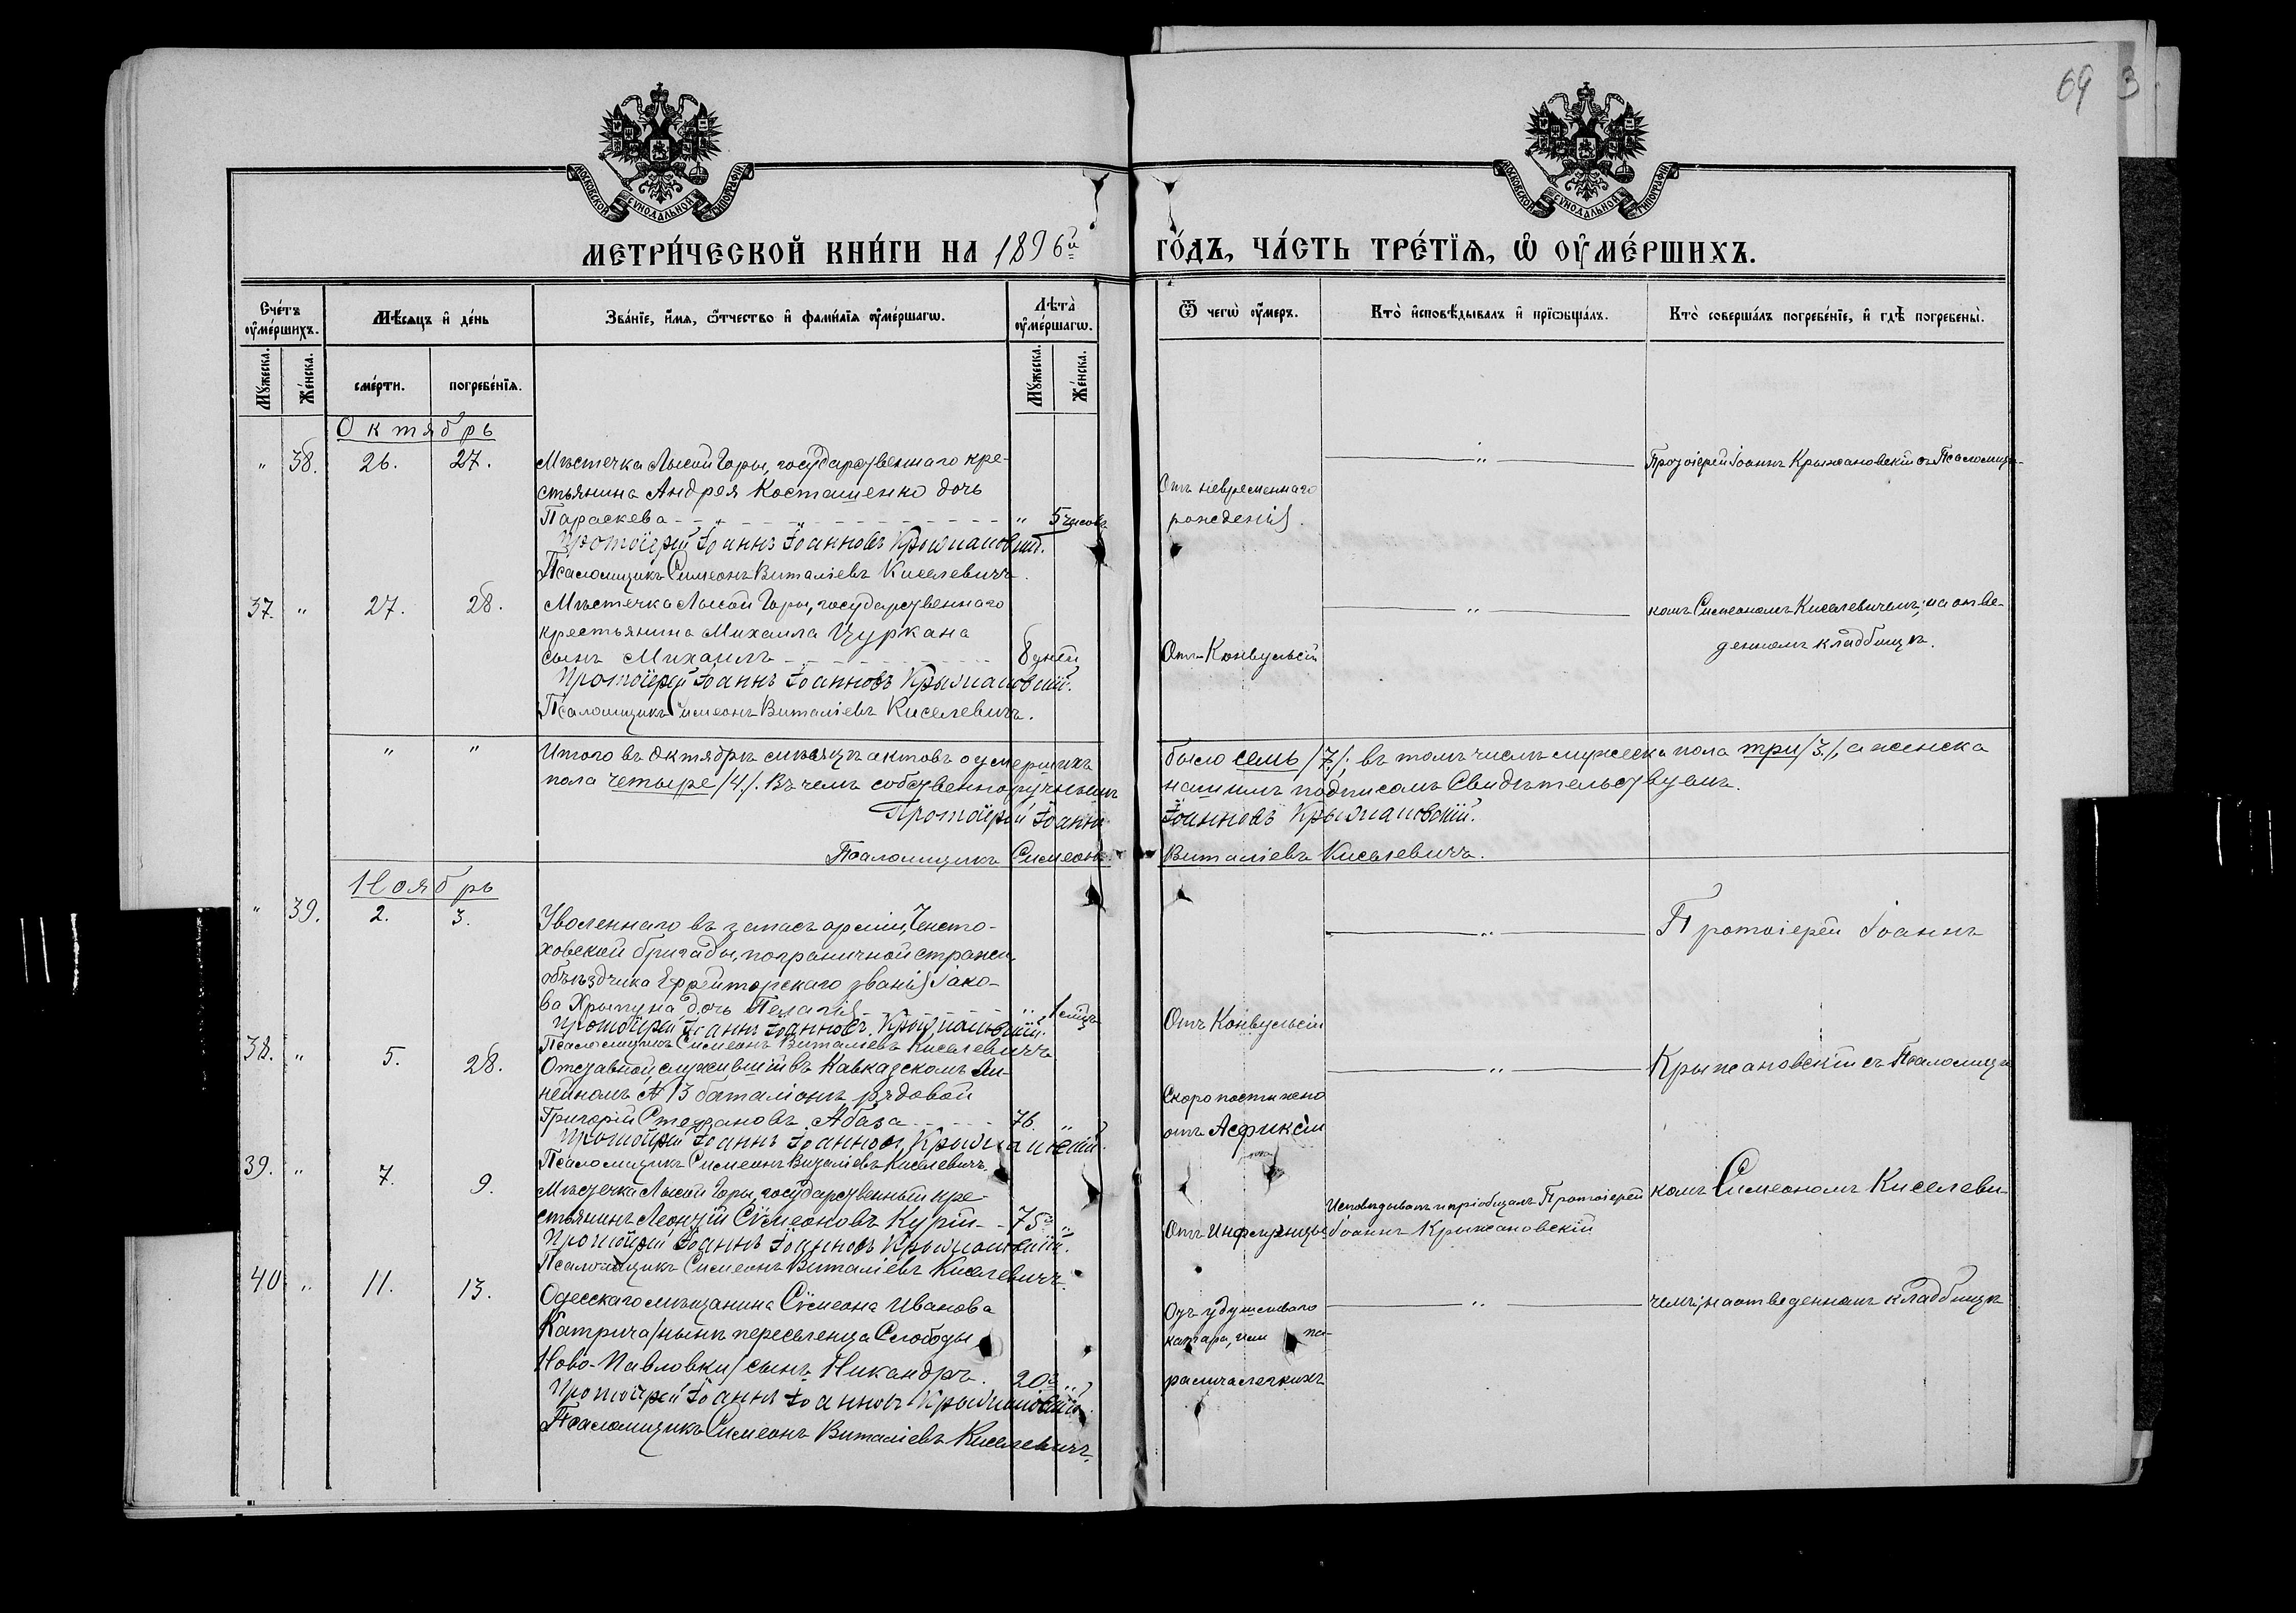 69 3
МОСКОВСКОЙ СУНОДАЛЬНОЙ ТИПОГРАФІИ
МОСКОВСКОЙ СУНОДАЛЬНОЙ ТИПОГРАФІИ
МЕТРИ́ЧЕСКОЙ КНИ́ГИ НА 1896й
ГО́ДЪ, ЧА́СТЬ ТРЕ́ТЇѦ, Ѡ҆ ОУ҆МЕ́РШИХЪ.
Сче́тъ оу҆ме́ршихъ.
Мѣ́сѧцъ и҆ де́нь
Зва́нїе, и҆́мѧ, ѻ҆́тчество и҆ фами́лїѧ оу҆ме́ршагѡ.
Лѣта̀ оу҆ме́ршагѡ.
Ѿ чегѡ̀ оу҆́меръ.
Кто̀ и҆сповѣ́дывалъ и҆ прїѡбща́лъ.
Кто̀ соверша́лъ погребе́нїе, и҆ гдѣ̀ погребены̀.
Мꙋ́жеска.
Же́нска.
сме́рти.
погребе́нїѧ.
Мꙋ́жеска.
Же́нска.
Октябрь
" 38. 26. 27. Мѣстечка Лысой Горы, государственнаго кре-
стьянина Андрея Косташенко дочь
Параскева " 5 часовъ
Протоіерей Іоаннъ Іоанновъ Крыжановскій.
Псаломщикъ Симеонъ Виталіевъ Киселевичъ.
Отъ невременнаго
рожденія.
"
Протоіерей Іоаннъ Крыжановскій съ Псаломщи-
37. " 27. 28. Мѣстечка Лысой Горы, государственнаго
крестьянина Михаила Цуркана
сынъ Михаилъ 8 дней
Протоіерей Іоаннъ Іоанновъ Крыжановскій.
Псаломщикъ Симеонъ Виталіевъ Киселевичъ.
Отъ Конвульсій
"
комъ Симеономъ Киселевичемъ, на отве-
денномъ кладбищѣ.
" " Итого въ Октябрѣ мѣсяцѣ актовъ о умершихъ было семь /7/; въ томъ числѣ мужеска пола три /3/, а женска
пола четыре /4/. Въ чемъ собственноручнымъ нашимъ подписомъ Свидѣтельствуемъ.
Протоіерей Іоаннъ Іоанновъ Крыжановскій.
Псаломщикъ Симеонъ Виталіевъ Киселевичъ.
Ноябрь
" 39. 2. 3. Уволеннаго въ запасъ арміи, Ченсто-
ховской бригады, пограничной стражи,
объѣздчика Ефрейторскаго званія Іако-
ва Хрипуна, дочь Пелагія " 1 мѣсц.
Протоіерей Іоаннъ Іоанновъ Крыжановскій.
Псаломщикъ Симеонъ Виталіевъ Киселевичъ
Отъ Конвульсіи
"
Протоіерей Іоаннъ
38. " 5. 28. Отставной, служившій въ Кавказскомъ Ли-
нейномъ № 13 баталіонѣ, рядовой
Григорій Стефановъ Абаза 76. "
Протоіерей Іоаннъ Іоанновъ Крыжановскій.
Псаломщикъ Симеонъ Виталіевъ Киселевичъ.
Скоропостижено
отъ Асфиксіи
"
Крыжановскій съ Псаломщи
39. " 7. 9. Мѣстечка Лысой Горы, государственный кре-
стьянинъ Леонтій Сѵмеоновъ Курій 75 "
Протоіерей Іоаннъ Іоанновъ Крыжановскій.
Псаломщикъ Симеонъ Виталіевъ Киселевичъ.
Отъ Инфлуэнцы
Исповѣдывалъ и пріобщалъ Протоіерей
Іоаннъ Крыжановскій
комъ Симеономъ Киселеви-
40 " 11. 13. Одесскаго мѣщанина Сѵмеона Иванова
Катрича /нынѣ переселенца Слободы
Ново-Павловки/ сынъ Никандръ. 20 "
Протоіерей Іоаннъ Іоанновъ Крыжановскій.
Псаломщикъ Симеонъ Виталіевъ Киселевичъ.
Отъ удушливаго
катара, или па-
ралича легкихъ
"
чемъ, на отведенномъ кладбищѣ